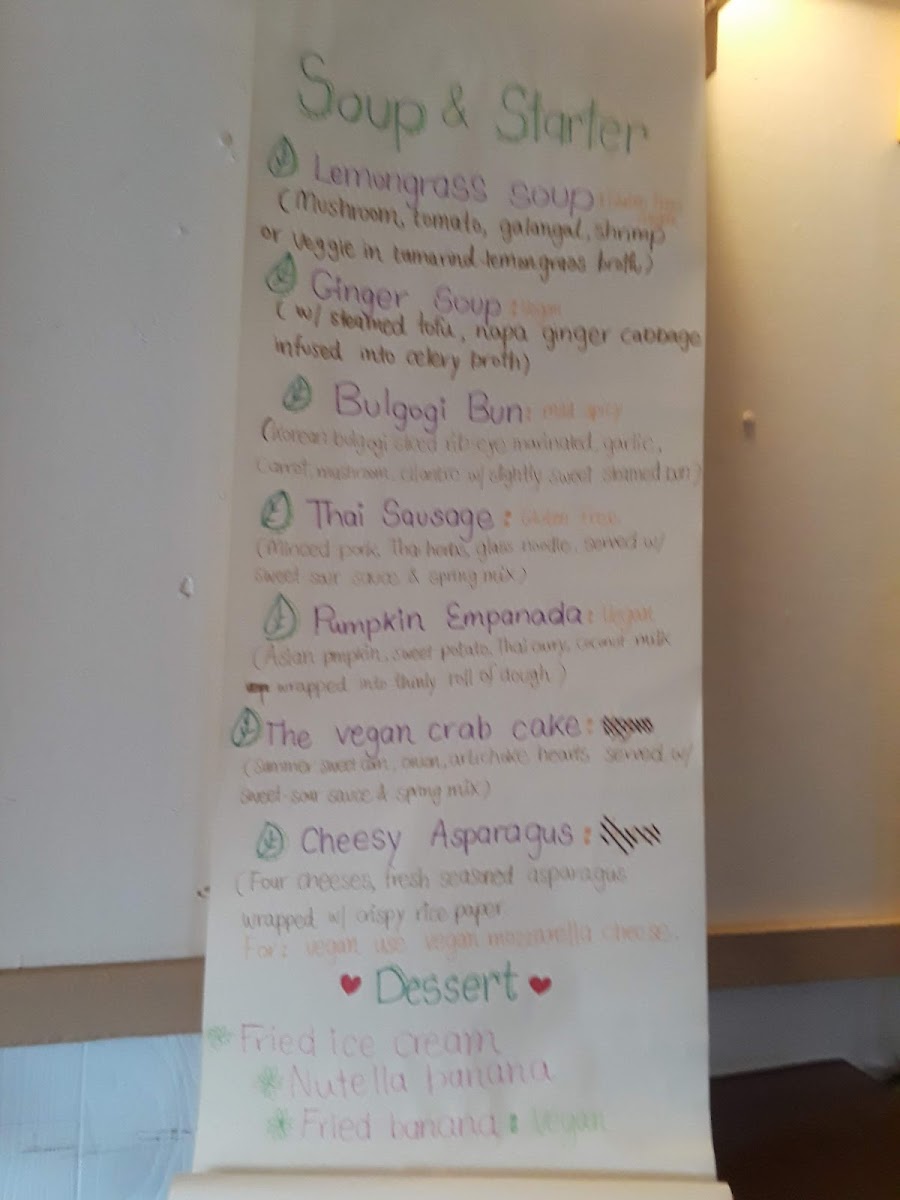 Soup & Starter
Lemongrass soup: Gluten free
veggie
(Mushroom, tomato, galangal, shrimp
or veggie in tamarind-lemongrass broth)
Ginger Soup: Vegan
(w/ steamed tofu, napa ginger cabbage
infused into celery broth)
Bulgogi Bun: mild spicy
(Korean bulgogi sliced rib-eye marinated, garlic,
carrot, mushroom, cilantro w/ slightly sweet steamed bun)
Thai Sausage: Gluten free
(Minced pork, Thai herbs, glass noodle, served w/
sweet-sour sauce & spring mix)
Pumpkin Empanada: Vegan
(Asian pumpkin, sweet potato, Thai curry, coconut milk
wrapped into thinly roll of dough)
The vegan crab cake:
(Summer sweet corn, onion, artichoke hearts served w/
sweet-sour sauce & spring mix)
Cheesy Asparagus:
(Four cheeses, fresh seasoned asparagus
wrapped w/ crispy rice paper
For: vegan use vegan mozzarella cheese.
Dessert
Fried ice cream
Nutella banana
Fried banana: Vegan